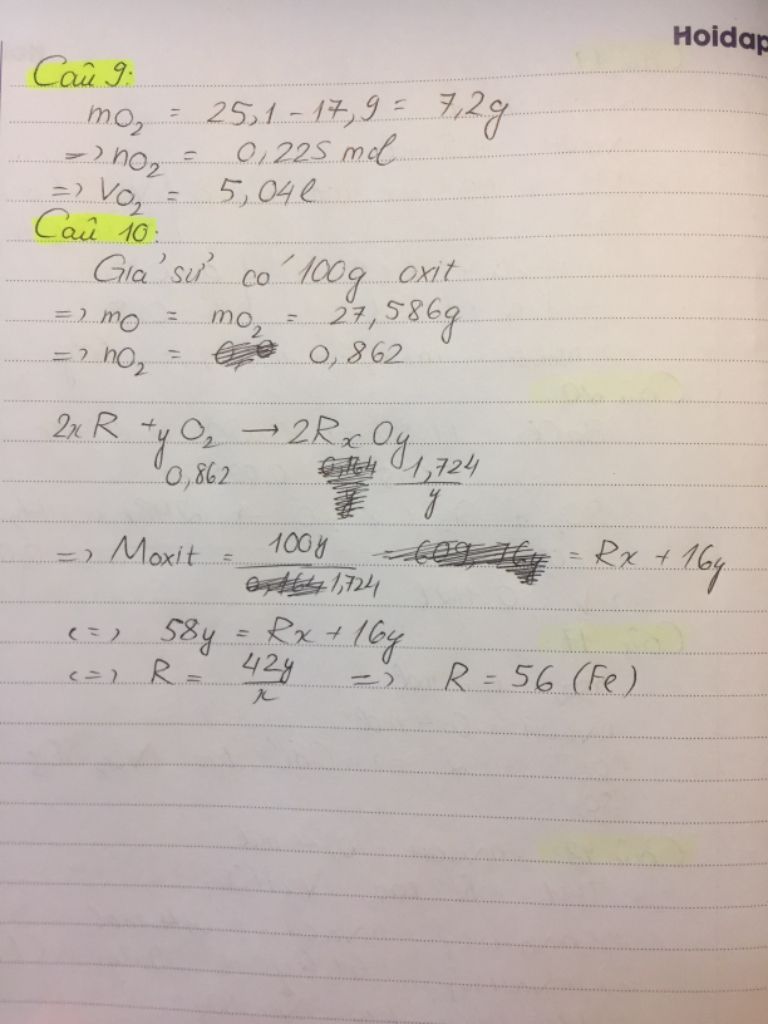 Hoidap
Câu 9:
mO₂ = 25,1 - 17,9 = 7,2g
=> nO₂ = 0,225 mol
=> VO₂ = 5,04l
Câu 10:
Giả sử có 100g oxit
=> mO = mO₂ = 27,586g
=> nO₂ = 0,862
2xR + yO₂ → 2RxOy
0,862 1,724/y
=> Moxit = 100y/1,724 = Rx + 16y
<=> 58y = Rx + 16y
<=> R = 42y/x => R = 56 (Fe)